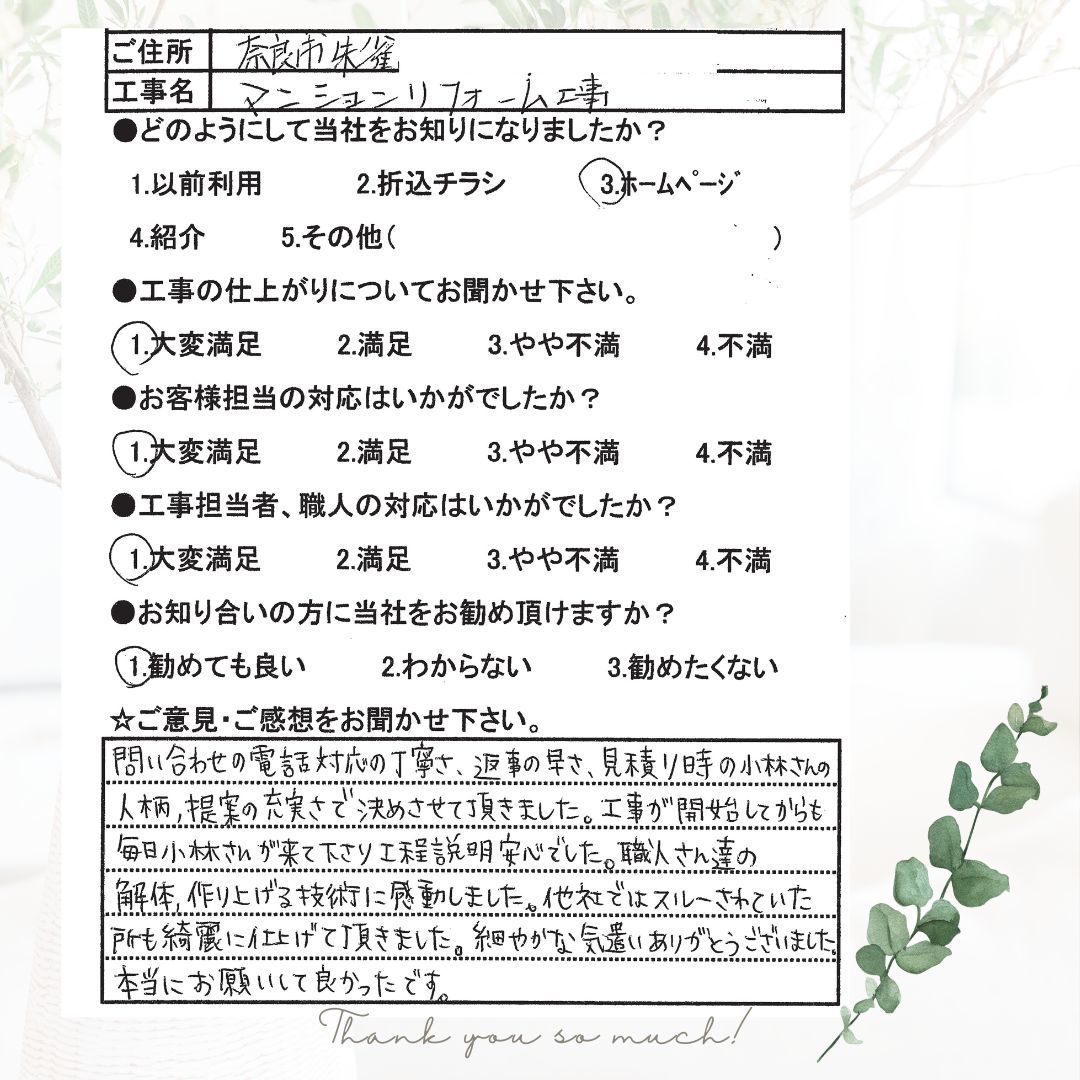 ご住所 奈良市朱雀
工事名 マンションリフォーム工事
●どのようにして当社をお知りになりましたか？
1.以前利用 2.折込チラシ 3.ﾎｰﾑﾍﾟｰｼﾞ
4.紹介 5.その他( )
●工事の仕上がりについてお聞かせ下さい。
1.大変満足 2.満足 3.やや不満 4.不満
●お客様担当の対応はいかがでしたか？
1.大変満足 2.満足 3.やや不満 4.不満
●工事担当者、職人の対応はいかがでしたか？
1.大変満足 2.満足 3.やや不満 4.不満
●お知り合いの方に当社をお勧め頂けますか？
1.勧めても良い 2.わからない 3.勧めたくない
☆ご意見・ご感想をお聞かせ下さい。
問い合わせの電話対応の丁寧さ、返事の早さ、見積り時の小林さんの
人柄,提案の充実さで決めさせて頂きました。工事が開始してからも
毎日小林さんが来て下さり工程説明安心でした。職人さん達の
解体,作り上げる技術に感動しました。他社ではスルーされていた
所も綺麗に仕上げて頂きました。細やかな気遣いありがとうございました。
本当にお願いして良かったです。
Thank you so much!